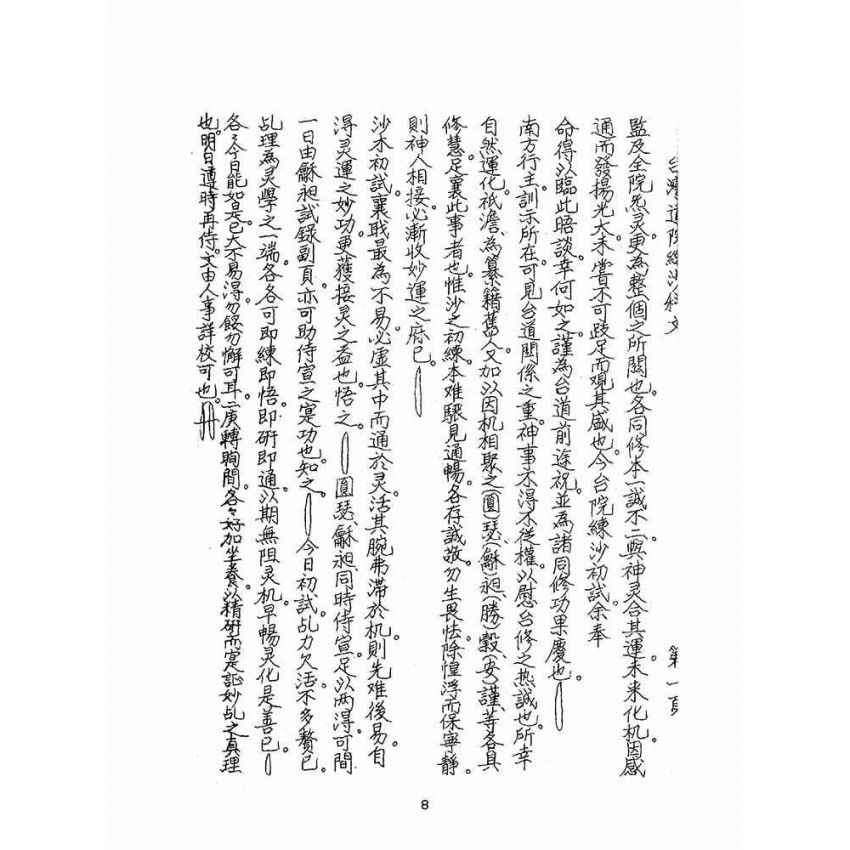 台灣道院練沙經文　第一頁
監及全院炁灵更為整個之所関也。各同修本一誠不二與神灵合其運。未来化机因感
通而發揚光大。未嘗不可跂足而观其盛也。今台院練沙初試。余奉
命得以臨此晤談。幸何如之。謹為台道前途祝。並為諸同修功果慶也。
南方行主訓示所在。可見台道関係之重。神事不得不従權。以慰台修之热誠也。所幸
自然運化。祇澹、為纂籍舊人。又加以因机相聚之(圓)瑟、(龢)昶、(勝)毅、(安)謹、等各具
修慧。足襄此事者也。惟沙之初練。本难驟見通暢。各存誠敬。勿生畏怯。除惶浮而保寧靜。
則神人相接。必漸收妙運之庥已。
沙木初試。襄戢最為不易。必虛其中而通於灵。活其腕弗滞於机。則先难後易。自
得灵運之妙功。更獲接灵之益也。悟之。圓瑟、龢昶、同時侍宣。足以两得。可間
一日由龢昶試錄副頁。亦可助侍宣之寔功也。知之。今日初試。乩力欠活。不多贅已。
乩理為灵學之一端。各各可即練即悟。即研即通。以期無阻灵机。早暢灵化。是善已。
各々今日能如是。已大不易得。勿餒勿懈可耳。二庚轉眴間。各々好加坐養。以精研而寔証妙乩之真理
也。明日遵時再侍。文由人事詳校可也。
8